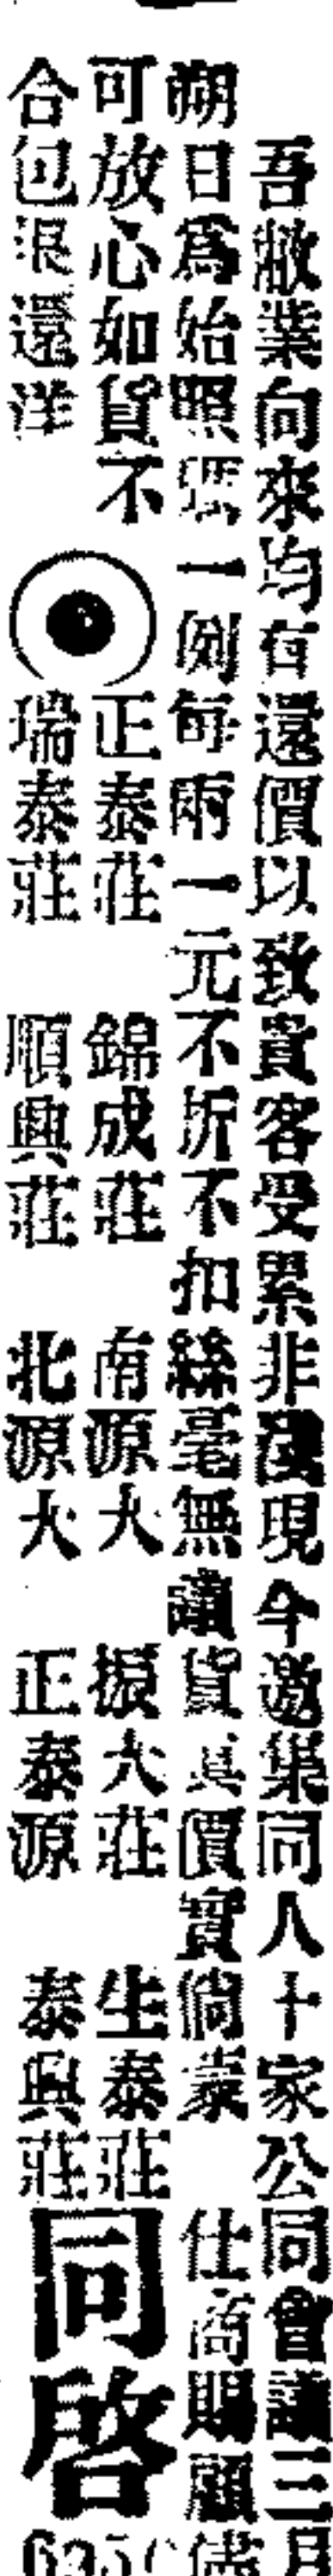 吾敝業向來均有還價以致貴客受累非淺現今邀集同人十家公同會議三月
朔日爲始照碼一例每兩一元不折不扣絲毫無讓貨真價實倘蒙 仕商賜顧儘
可放心如貨不
合包退還洋
正泰莊 錦成莊 南源大 振大莊 生泰莊
瑞泰莊 順興莊 北源大 正泰源 泰興莊
同啓